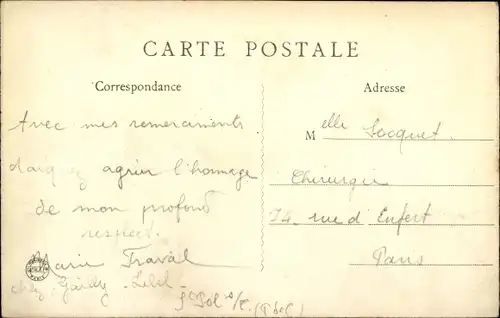 CARTE POSTALE
Correspondance
Adresse
Avec mes remerciments
daignez agréer l'homage
de mon profond
respect.
Marie Traval
chez Gardy - Lebel
St Pol s/T. (P de C)
Melle Socquet
Chirurgie
74 rue d'Enfert
Paris